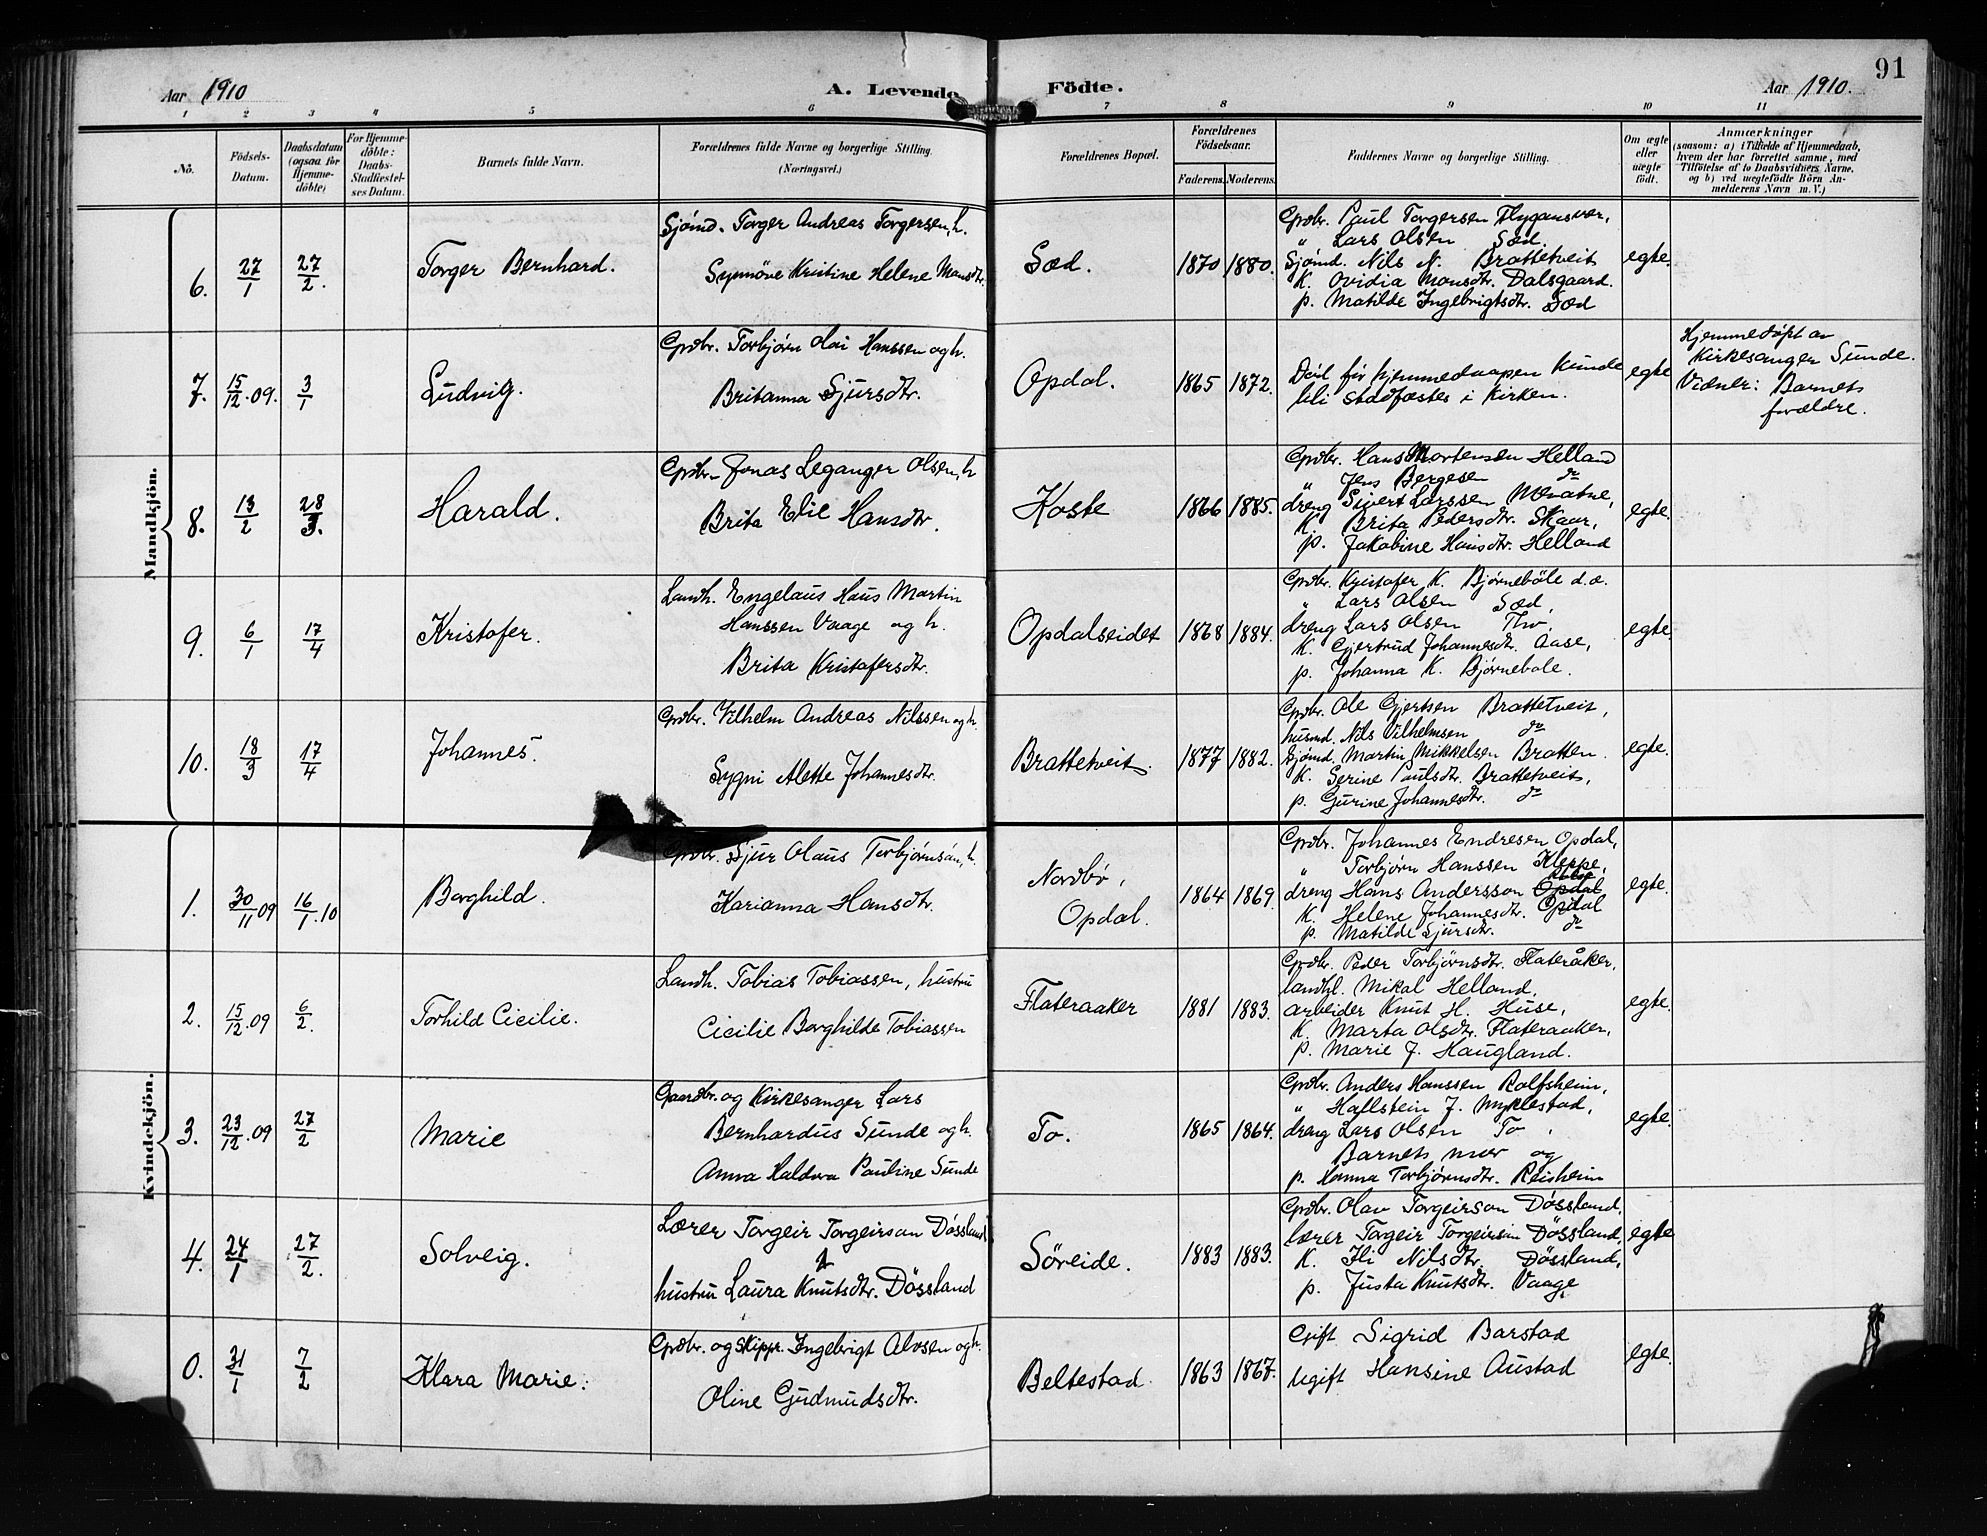 Aar 1910
A. Levende
Födte.
Aar 1910.
91
1 2 3 4 5 6 7 8 9 10 11
No.
Födsels-
Datum.
Daabsdatum
(ogsaa for
Hjemme-
döbte)
For Hjemme-
döbte:
Daabs-
Stadfæstel-
ses Datum.
Barnets fulde Navn.
Forældrenes fulde Navne og borgerlige Stilling.
(Næringsvei.)
Forældrenes Bopæl.
Forældrenes
Födselsaar.
Faderens. Moderens.
Faddernes Navne og borgerlige Stilling.
Om ægte
eller
uægte
födt.
Anmærkninger
(saasom: a) i Tilfælde af Hjemmedaab,
hvem der har forrettet samme, med
Tilföielse af to Daabsvidners Navne,
og b) ved uægtefödte Börn An-
melderens Navn m. V.)
Mandkjön.
6. 27/1 27/2. Torger Bernhard.
Sjömd. Torger Andreas Torgersen, h.
Synnöve Kristine Helene Monsdtr.
Sæd. 1870 1880.
Grdbr. Paul Torgersen Flygansvær,
" Lars Olsen Sæd
Sjömd. Nils N. Brattetveit
K. Ovidia Monsdtr. Dalsgaard.
p. Matilde Ingebrigtsdtr. Sæd
egte.
7. 15/12.09. 3/1 Ludvig.
Grdbr. Torbjörn Olai Hanssen og h.
Britanna Sjursdtr.
Opdal. 1865 1872.
Död för hjemmedaapen kunde
bli stadfæstes i kirken.
egte
Hjemmedöpt av
Kirkesanger Sunde.
Vidner: Barnets
forældre.
8. 13/2 28/3. Harald.
Grdbr. Jonas Leganger Olsen, h
Brita Elie Hansdtr.
Koste 1866 1885.
Grdbr. Hans Mortensen Helland
" Jens Bergesen do
dreng Sivert Larssen
K. Brita Pedersdtr. Skaar,
p. Jakobine Hansdtr. Helland
egte.
9. 6/1 17/4 Kristofer.
Landh. Engelaus Hans Martin
Hanssen Vaage og h.
Brita Kristofersdtr.
Opdalseidet 1868 1884.
Grdbr. Kristofer K. Björneböle d.e.
" Lars Olsen Sæd,
dreng Lars Olsen Tho,
K. Gjertrud Johannesdtr. Aase,
p. Johanna K. Björnebole.
egte.
10. 18/3 17/4 Johannes.
Grdbr. Vilhelm Andreas Nilssen og h.
Sygni Alette Johannesdtr.
Brattetveit. 1877 1882.
Grdbr. Ole Gjertsen Brattetveit,
husmd. Nils Vilhelmsen do
Sjömd. Martin Mikkelsen Bratten.
K. Serine Paulsdtr. Brattetveit,
p. Gurine Johannesdtr. do
egte.
Kvindekjön.
1. 30/11 09 16/1.10 Borghild.
Grdbr. Sjur Olaus Torbjørnsön, h.
Karianna Hansdtr.
Nordbø,
Opdal. 1864 1869.
Grdbr. Johannes Endresen Opdal,
" Torbjørn Hanssen Kleppe,
dreng Hans Andersson Opdal
K. Helene Johannesdtr. Opdal
p. Matilde Sjursdtr. do
egte.
2. 15/12.09 6/2. Torhild Cicilie.
Landh. Tobias Tobiassen, hustru
Cicilie Borghilde Tobiassen
Flateraaker 1881 1883.
Grdbr. Peder Torbjørnsdtr. Flateråker,
landhl. Mikal Helland.
arbeider Knut H. Huse,
K. Marta Olsdtr. Flateraaker,
p. Marie J. Haugland.
egte.
3. 23/12.09 27/2 Marie
Gaardbr. og Kirkesanger Lars
Bernhardus Sunde og h.
Anna Haldora Pauline Sunde
To. 1865 1864.
Grdbr. Anders Hanssen Rolfsheim,
" Hallstein J. Myklestad,
dreng Lars Olsen To,
Barnets mor og
p. Hanna Torbjørnsdtr. Reisheim
egte.
4. 24/1 27/2. Solveig.
Lærer Torgeir Torgeirson Døssland
hustru Laura Knutsdtr. Døssland
Söreide. 1883 1883.
Grdbr. Olav Torgeirson Døssland,
lærer Torgeir Torgeirson Døssland,
K. Ili Nilsdtr. Døssland,
p. Justa Knutsdtr. Vaage
egte
0. 31/1 7/2 Klara Marie.
Grdbr. og skippr. Ingebrigt Alvsen og h.
Oline Gudmundsdtr.
Beltestad. 1863 1867.
Gift Sigrid Barstad
Ugift Hansine Austad
egte.